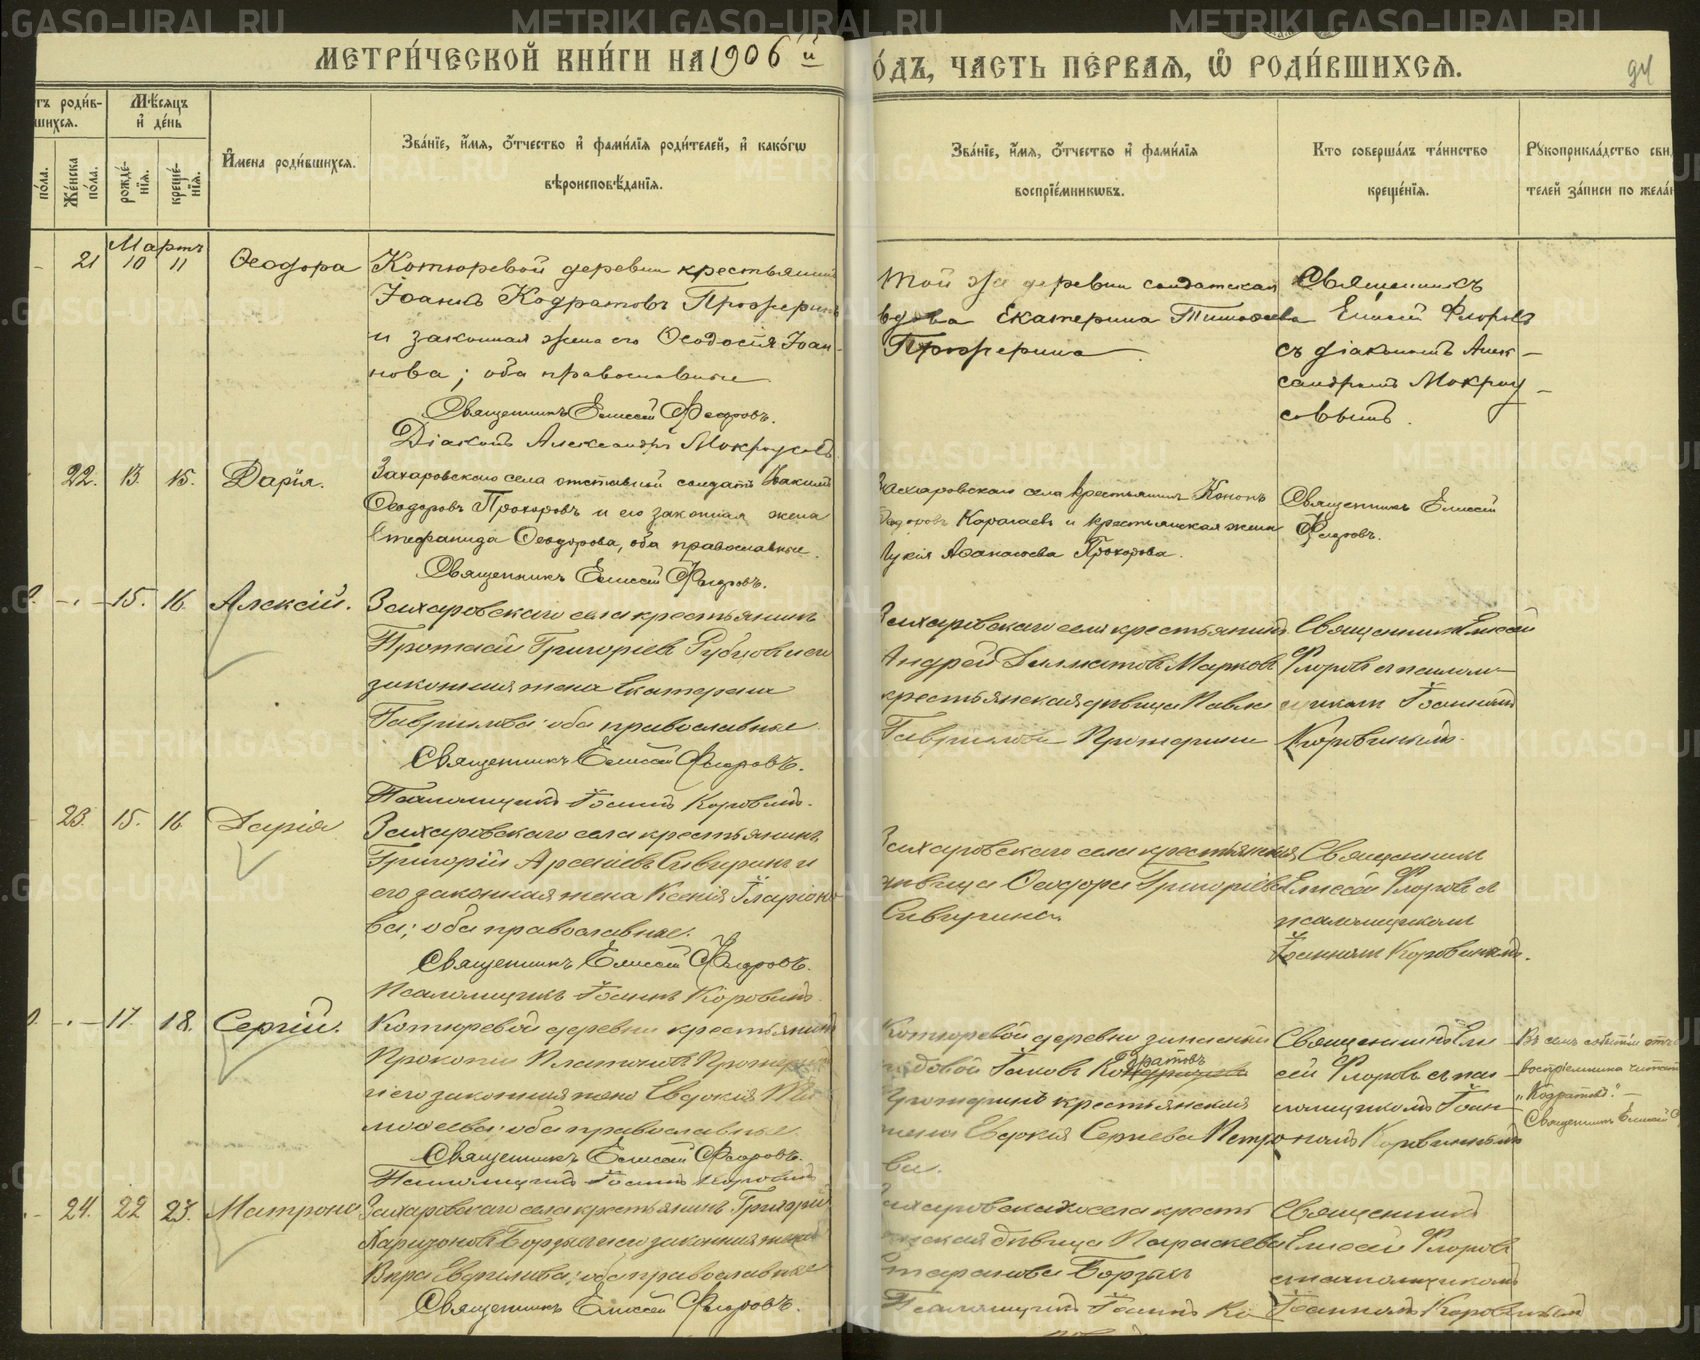 МЕТРИ́ЧЕСКОЙ КНИ́ГИ НА 1906 й
О́ДЪ, ЧАСТЬ ПЕ́РВАЯ, Ѿ РОДИ́ВШИХСЯ.
94
тъ роди́в-
шихся.
по́ла.
Же́нска по́ла.
Мѣ́сяцъ и де́нь
рожде́-
нїя.
креще́-
нїя.
И҆мена роди́вшихся.
Зва́нїе, и҆́мя, ѻ҆́тчество и҆ фами́лїя роди́телей, и҆ како́гѡ
вѣроисповѣ́данїя.
Зва́нїе, и҆́мя, ѻ҆́тчество и҆ фами́лїя
воспрїе́мникѡвъ.
Кто соверша́лъ та́инство
креще́нїя.
Рꙋкоприкла́дство сви
телей за́писи по жела́
Мартъ
21 10 11 Ѳеодора
Котюревой деревни крестьянинъ
Іоаннъ Кодратовъ Прожеринъ
и законная жена его Ѳеодосія Іоан-
нова; оба православные
Священникъ Елисей Флоровъ.
Діаконъ Александръ Мокроусовъ
Той же деревни солдатская
вдова Екатерина Тимоѳеева
Прожерина
Священникъ
Елисей Флоровъ
съ діакономъ Алек-
сандромъ Мокроу-
совымъ.
22. 13. 15. Дарія.
Захаровскаго села отставной солдатъ Іоакимъ
Ѳеодоровъ Прохоровъ и его законная жена
Стефанида Ѳеодорова, оба православные.
Священникъ Елисей Флоровъ.
Захаровскаго села крестьянинъ Кононъ
Ѳеодоровъ и крестьянская жена
Лукія Аѳанасьева Прохорова.
Священникъ Елисей
Флоровъ.
15. 16. Алексій.
Захаровскаго села крестьянинъ
Протасій Григоріевъ Рубцовъ и его
законная жена Екатерина
Гаврилова; оба православные
Священникъ Елисей Флоровъ.
Псаломщикъ Іоаннъ Коровинъ.
Захаровскаго села крестьянинъ
Андрей Далматовъ Марковъ
крестьянская дѣвица Павла
Гаврилова Прожерина
Священникъ Елисей
Флоровъ съ псалом-
щикомъ Іоанномъ
Коровинымъ.
23. 15. 16. Дарія
Захаровскаго села крестьянинъ
Григорій Арсеніевъ Сивугинъ и
его законная жена Ксенія Иларіоно-
ва; оба православные.
Священникъ Елисей Флоровъ.
Псаломщикъ Іоаннъ Коровинъ.
Захаровскаго села крестьянская
дѣвица Ѳеодора Григоріева
Сивугина.
Священникъ
Елисей Флоровъ съ
псаломщикомъ
Іоанномъ Коровинымъ.
17. 18. Сергій.
Котюревой деревни крестьянинъ
Прокопій Платоновъ
и его законная жена Евдокія Ти
моѳеева; оба православные
Священникъ Елисей Флоровъ.
Псаломщикъ Іоаннъ Коровинъ
Котюревой деревни запасный
рядовой Іаковъ Кодратовъ
Прожеринъ крестьянская
жена Евдокія Сергіева Петро
ва.
Священникъ Ели
сей Флоровъ съ пса
ломщикомъ Іоан-
номъ Коровинымъ
Въ семъ событіи отче
воспріемника читать
„Кодратовъ".—
Священникъ Елисей
24. 22 25. Матрона
Захаровскаго села крестьянинъ Григорій
Харитоновъ и его законная жена
Вѣра; оба православные
Священникъ Елисей Флоровъ.
Захаровскаго села кресть
янская дѣвица Параскева
Борзыхъ
Псаломщикъ Іоаннъ Ко
Священникъ
Елисей Флоровъ
съ псаломщикомъ
Іоанномъ Коровинымъ